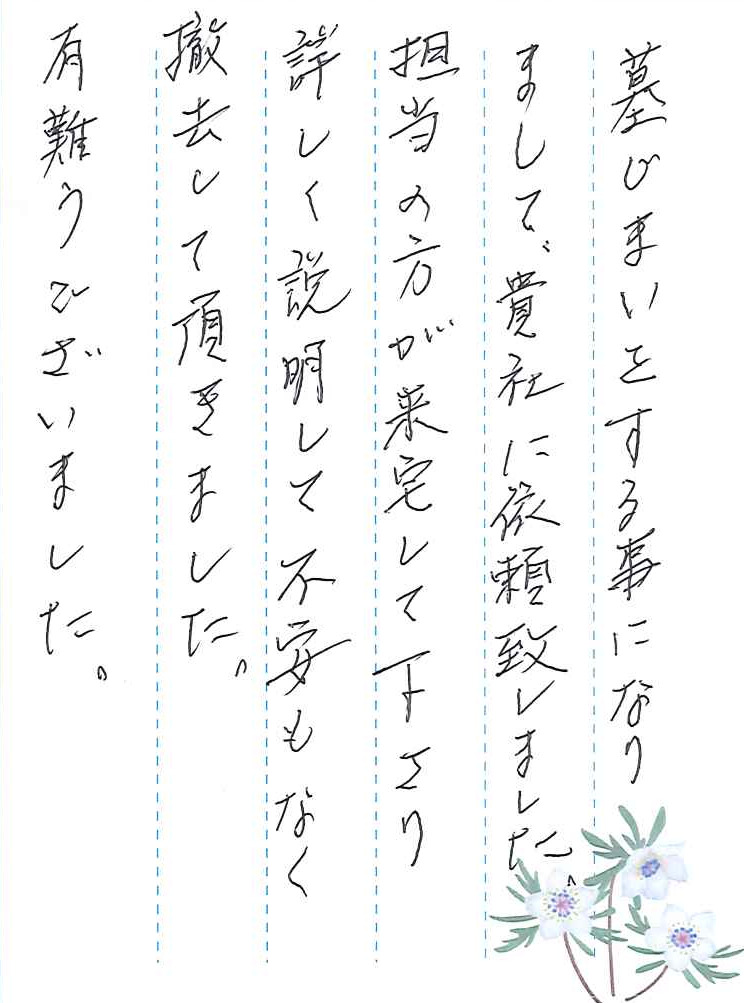 墓じまいをする事になり
まして、貴社に依頼致しました。
担当の方が来宅して下さり
詳しく説明して不安もなく
撤去して頂きました。
有難うございました。